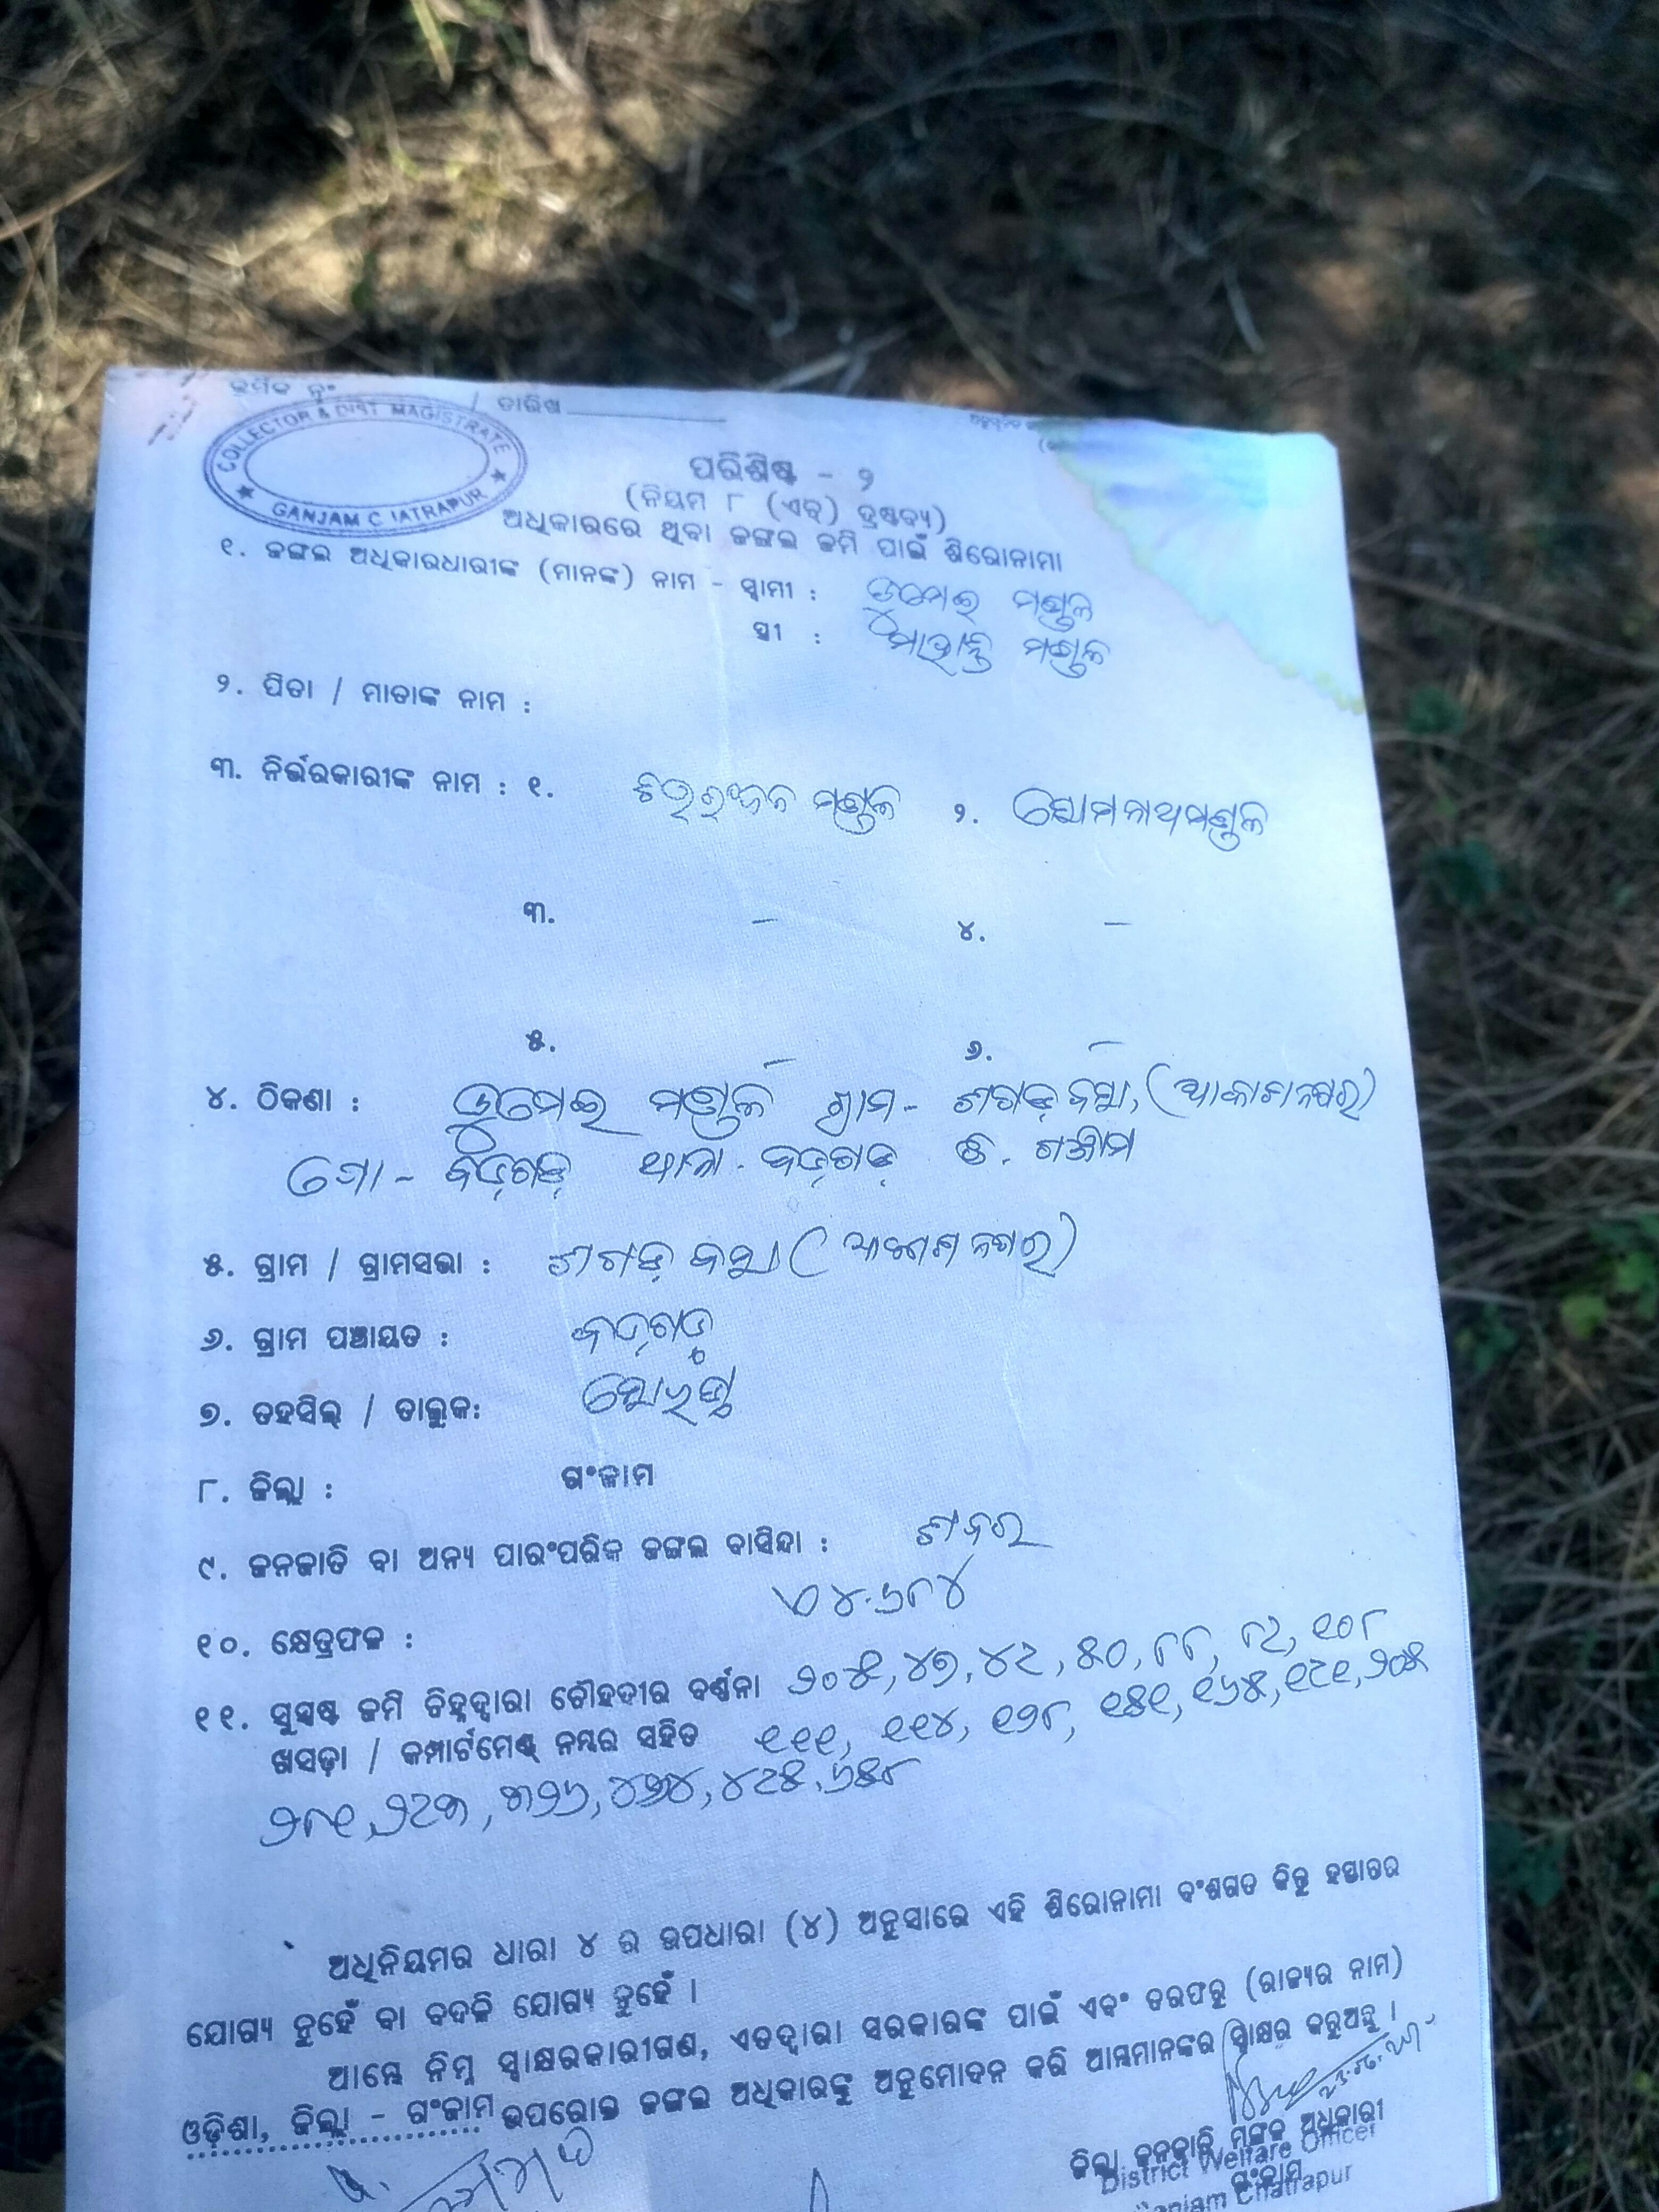 କ୍ରମିକ ନଂ / ତାରିଖ
COLLECTOR & DIST. MAGISTRATE
GANJAM CHATRAPUR
ପରିଶିଷ୍ଟ - ୨
(ନିୟମ ୮ (ଏଚ୍) ଦ୍ରଷ୍ଟବ୍ୟ)
ଅଧିକାରରେ ଥିବା ଜଙ୍ଗଲ ଜମି ପାଇଁ ଶିରୋନାମା
୧. ଜଙ୍ଗଲ ଅଧିକାରଧାରୀଙ୍କ (ମାନଙ୍କ) ନାମ - ସ୍ୱାମୀ : ଡୁମେଇ ମଣ୍ଡଳ
ସ୍ତ୍ରୀ : ମଣ୍ଡଳ
୨. ପିତା / ମାତାଙ୍କ ନାମ :
୩. ନିର୍ଭରକାରୀଙ୍କ ନାମ : ୧. ଚିତ୍ତରଂଜନ ମଣ୍ଡଳ ୨. ସୋମନାଥ ମଣ୍ଡଳ
୩. – ୪. –
୫. – ୬. –
୪. ଠିକଣା : ଡୁମେଇ ମଣ୍ଡଳ ଗ୍ରାମ - ଶଗଡ଼ ବସା, (ଆକାଶ ନଗର)
ପୋ - ବଡ଼ଗଡ଼ ଥାନା - ବଡ଼ଗଡ଼ ଜି. ଗଞ୍ଜାମ
୫. ଗ୍ରାମ / ଗ୍ରାମସଭା : ଶଗଡ଼ ବସା (ଆକାଶ ନଗର)
୬. ଗ୍ରାମ ପଞ୍ଚାୟତ : ବଡ଼ଗଡ଼
୭. ତହସିଲ୍ / ତାଲୁକ: ସୋରଡ଼ା
୮. ଜିଲ୍ଲା : ଗଂଜାମ
୯. ଜନଜାତି ବା ଅନ୍ୟ ପାରଂପରିକ ଜଙ୍ଗଲ ବାସିନ୍ଦା : ଶବର
୧୦. କ୍ଷେତ୍ରଫଳ : ୪.୬୮୪
୧୧. ସୁସ୍ପଷ୍ଟ ଜମି ଚିହ୍ନଦ୍ୱାରା ଚୌହଦୀର ବର୍ଣ୍ଣନା ୨୦୫, ୪୭, ୪୯, ୫୦, ୮୮, ୮୯, ୧୦୮
ଖସଡ଼ା / କମ୍ପାର୍ଟମେଣ୍ଟ ନମ୍ବର ସହିତ ୧୧୧, ୧୧୪, ୧୨୮, ୧୫୧, ୧୬୫, ୧୯୧, ୨୦୫
୨୮୧, ୨୯୩, ୩୨୬, ୪୨୪, ୪୯୫, ୬୫୮
ଅଧିନିୟମର ଧାରା ୪ ର ଉପଧାରା (୪) ଅନୁସାରେ ଏହି ଶିରୋନାମା ବଂଶଗତ କିନ୍ତୁ ହସ୍ତାନ୍ତର
ଯୋଗ୍ୟ ନୁହେଁ ବା ବଦଳି ଯୋଗ୍ୟ ନୁହେଁ ।
ଆମ୍ଭେ ନିମ୍ନ ସ୍ୱାକ୍ଷରକାରୀଗଣ, ଏତଦ୍ୱାରା ସରକାରଙ୍କ ପାଇଁ ଏବଂ ତରଫରୁ (ରାଜ୍ୟର ନାମ)
ଓଡ଼ିଶା, ଜିଲ୍ଲା - ଗଂଜାମ ଉପରୋକ୍ତ ଜଙ୍ଗଲ ଅଧିକାରଙ୍କୁ ଅନୁମୋଦନ କରି ଆମ୍ଭମାନଙ୍କର ସ୍ୱାକ୍ଷର କରୁଅଛୁ ।
ଜିଲ୍ଲା ଜନଜାତି ମଙ୍ଗଳ ଅଧିକାରୀ
District Welfare Officer
ଗଂଜାମ
Ganjam Chatrapur